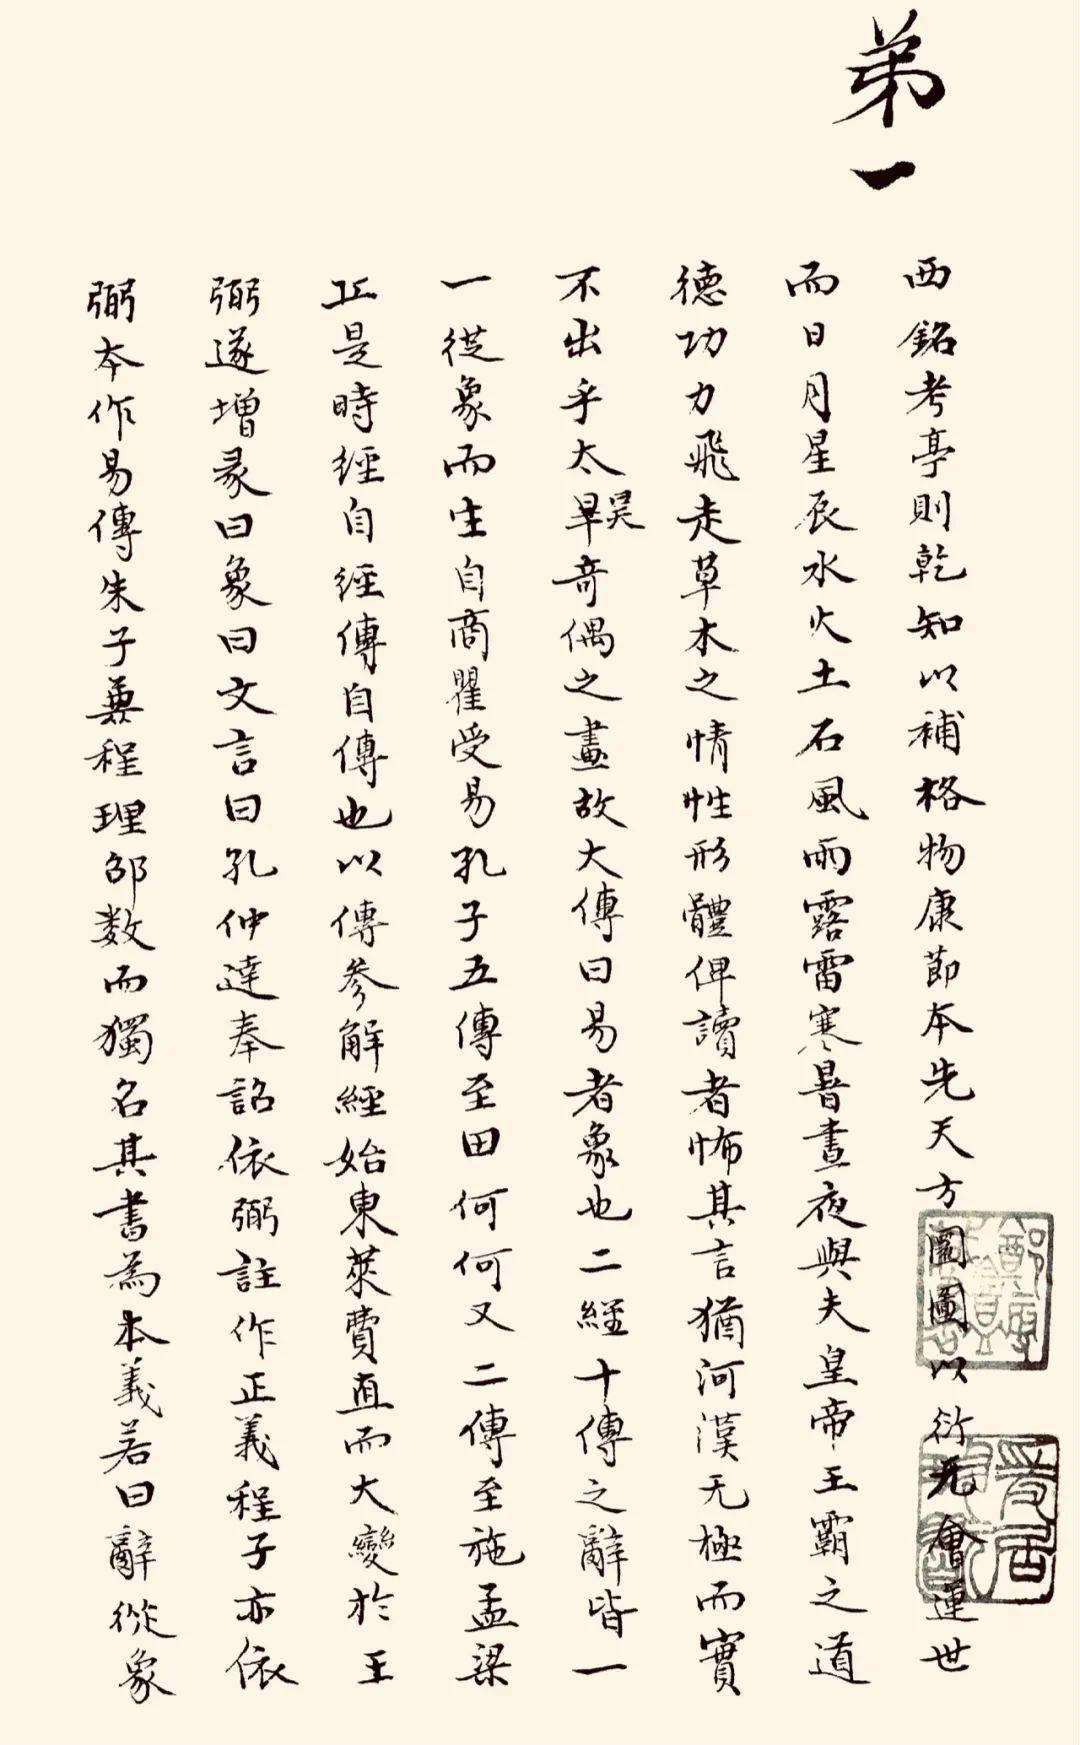 弟一
西銘考亭則乾知以補格物康節本先天方圖圓圖以衍元會運世
而日月星辰水火土石風雨露雷寒暑晝夜與夫皇帝王霸之道
德功力飛走草木之情性形體俾讀者怖其言猶河漢无極而實
不出乎太昊奇偶之畫故大傳曰易者象也二經十傳之辭皆一
一從象而生自商瞿受易孔子五傳至田何何又二傳至施孟梁
丘是時經自經傳自傳也以傳參解經始東萊費直而大變於王
弼遂增彖曰象曰文言曰孔仲達奉詔依弼註作正義程子亦依
弼本作易傳朱子兼程理邵数而獨名其書為本義若曰辭從象